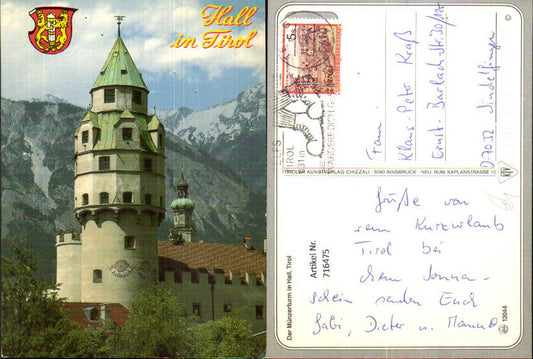 Hall
in Tirol
Fam.
Klaus-Peter Kraß
Ernst-Barlach-Str. 30/120
D 7032 Sindelfingen
TIROLER KUNSTVERLAG CHIZZALI · 6040 INNSBRUCK - NEU RUM, KAPLANSTRASSE
TIROL
Der Münzerturm in Hall, Tirol
Artikel Nr.
716475
Grüße von
dem Kurzurlaub
Tirol bei
Sonnen-
schein senden Euch
Gabi, Dieter u.
12044